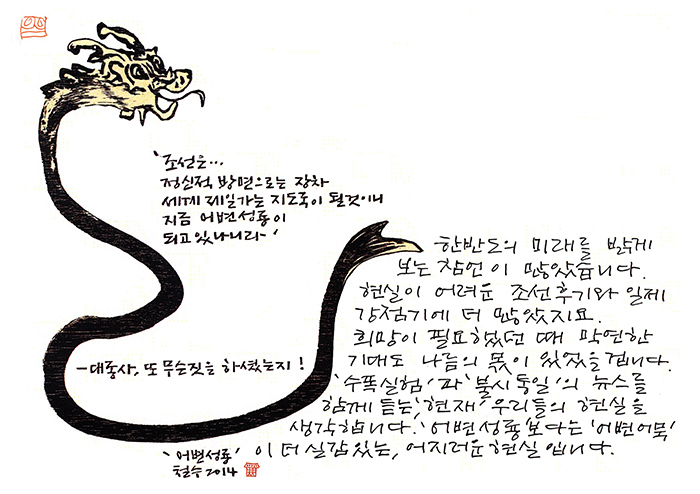 '조선은...
정신적 방면으로는 장차
세계 제일가는 지도국이 될것이니
지금 어변성룡이
되고있나니라-'
한반도의 미래를 밝게
보는 참언이 많았습니다.
현실이 어려운 조선후기와 일제
강점기에 더 많았지요.
희망이 필요했던 때 막연한
기대도 나름의 몫이 있었을겁니다.
'수폭실험'과 '불시통일'의 뉴스를
함께 듣는, '현재' 우리들의 현실을
생각합니다. '어변성룡'보다는 '어변어묵'
이 더 실감있는, 어지러운 현실입니다.
-대종사, 또 무슨짓을 하셨는지!
'어변성룡'
철수 2014